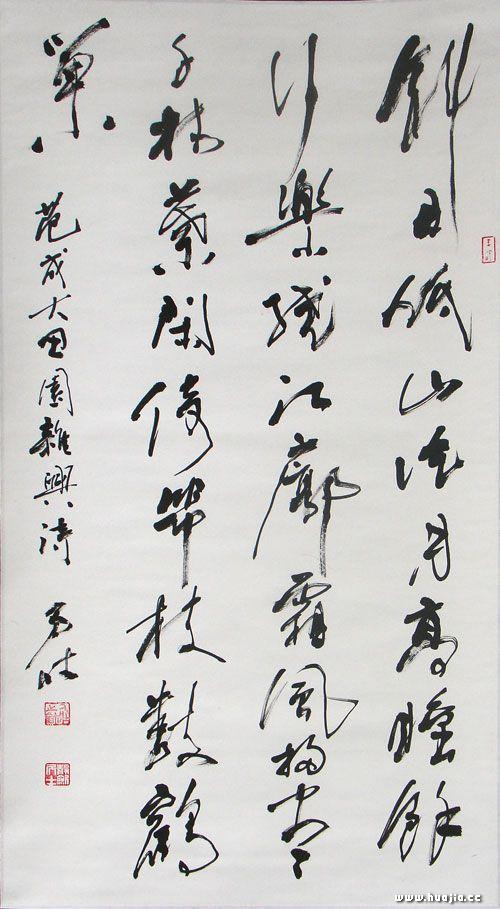 斜日低山片月高睡餘
行樂繞江廓霜風搗盡
千林葉閑倚筇枝數鸛
巢
范成大田園雜興詩
www.huajia.cc